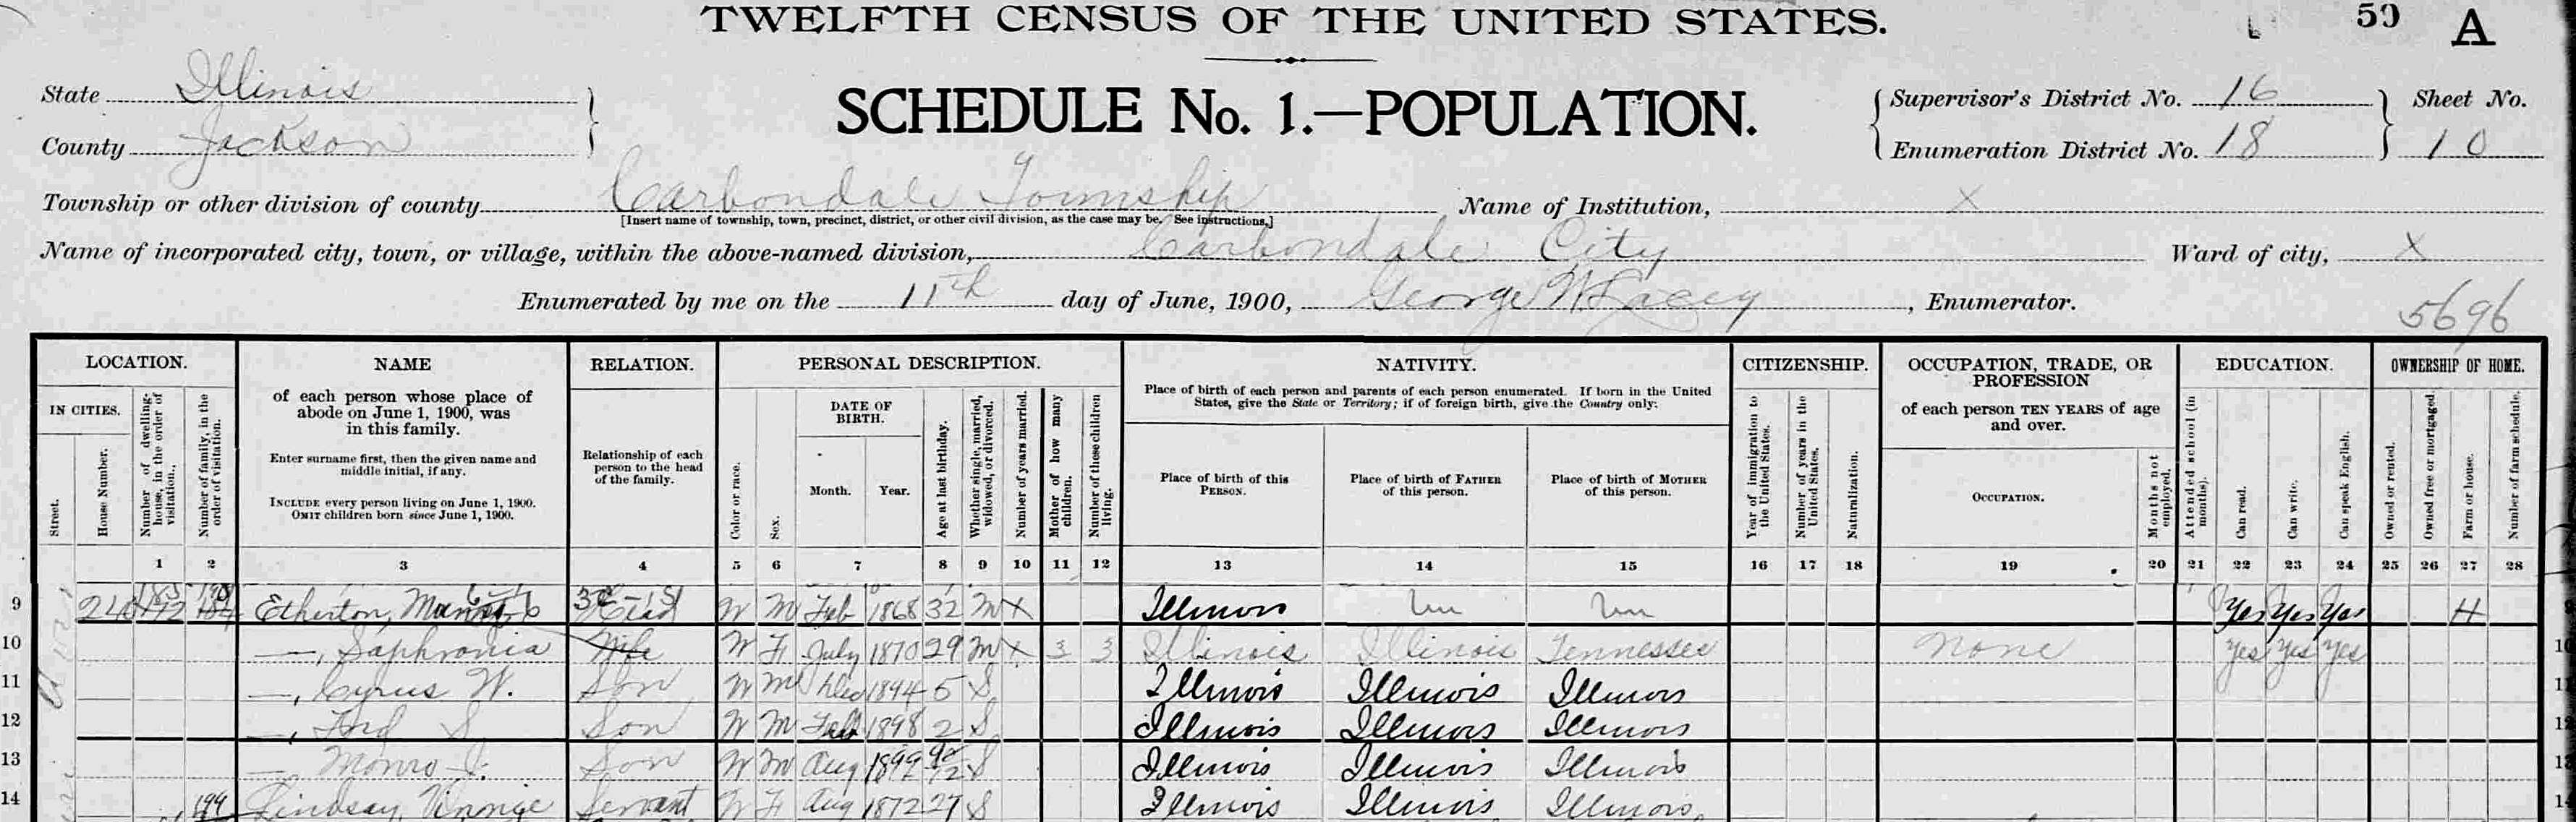 TWELFTH CENSUS OF THE UNITED STATES.
59 A
State Illinois
County Jackson
SCHEDULE No. 1.—POPULATION.
Supervisor's District No. 16
Enumeration District No. 18
Sheet No.
10
Township or other division of county Carbondale Township
[Insert name of township, town, precinct, district, or other civil division, as the case may be. See instructions.]
Name of Institution, X
Name of incorporated city, town, or village, within the above-named division, Carbondale City
Ward of city, X
Enumerated by me on the 11th day of June, 1900, George W Lacey, Enumerator.
5696
LOCATION.
IN CITIES.
Street.
House Number.
Number of dwelling-house, in the order of visitation.
Number of family, in the order of visitation.
NAME
of each person whose place of
abode on June 1, 1900, was
in this family.
Enter surname first, then the given name and
middle initial, if any.
INCLUDE every person living on June 1, 1900.
OMIT children born since June 1, 1900.
RELATION.
Relationship of each
person to the head
of the family.
PERSONAL DESCRIPTION.
Color or race.
Sex.
DATE OF
BIRTH.
Month.
Year.
Age at last birthday.
Whether single, married, widowed, or divorced.
Number of years married.
Mother of how many children.
Number of these children living.
NATIVITY.
Place of birth of each person and parents of each person enumerated. If born in the United
States, give the State or Territory; if of foreign birth, give the Country only.
Place of birth of this
PERSON.
Place of birth of FATHER
of this person.
Place of birth of MOTHER
of this person.
CITIZENSHIP.
Year of immigration to the United States.
Number of years in the United States.
Naturalization.
OCCUPATION, TRADE, OR
PROFESSION
of each person TEN YEARS of age
and over.
OCCUPATION.
Months not employed.
EDUCATION.
Attended school (in months).
Can read.
Can write.
Can speak English.
OWNERSHIP OF HOME.
Owned or rented.
Owned free or mortgaged.
Farm or house.
Number of farm schedule.
1 2 3 4 5 6 7 8 9 10 11 12 13 14 15 16 17 18 19 20 21 22 23 24 25 26 27 28
9 Etherton, Head W M Feb 1868 32 M X Illinois Un Un Yes Yes Yes H
10 —, Saphronia Wife W F July 1870 29 M X 3 3 Illinois Illinois Tennessee None Yes Yes Yes 10
11 —, Cyrus W. Son W M Dec 1894 5 S Illinois Illinois Illinois 11
12 —, Ford S Son W M Feb 1898 2 S Illinois Illinois Illinois 12
13 — Monro J. Son W M Aug 1899 9/12 S Illinois Illinois Illinois 13
14 199 Lindsay, Servant W F Aug 1872 27 S Illinois Illinois Illinois 14